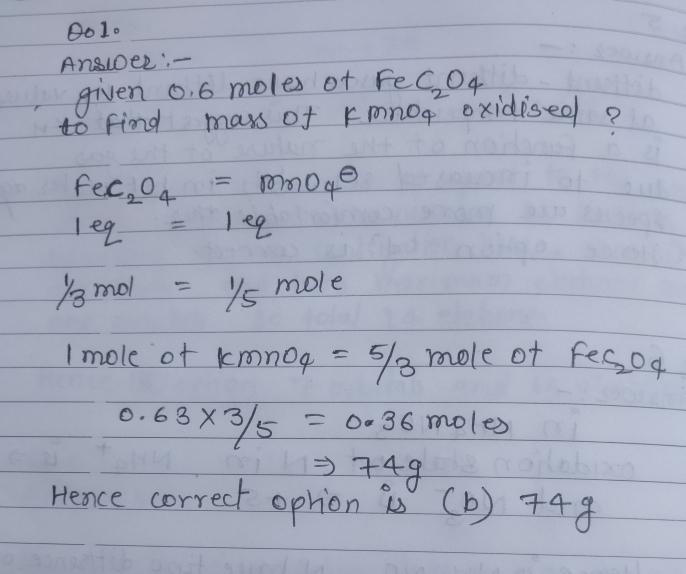 Q01.
Answer :-
given 0.6 moles of FeC₂O4
to find mass of KmnO4 oxidised ?
FeC₂O4 = mnO4⊖
1 eq = 1 eq
1/3 mol = 1/5 mole
1 mole of KmnO4 = 5/3 mole of FeC₂O4
0.63 X 3/5 = 0.36 moles
⇒ 74g
Hence correct option is (b) 74 g